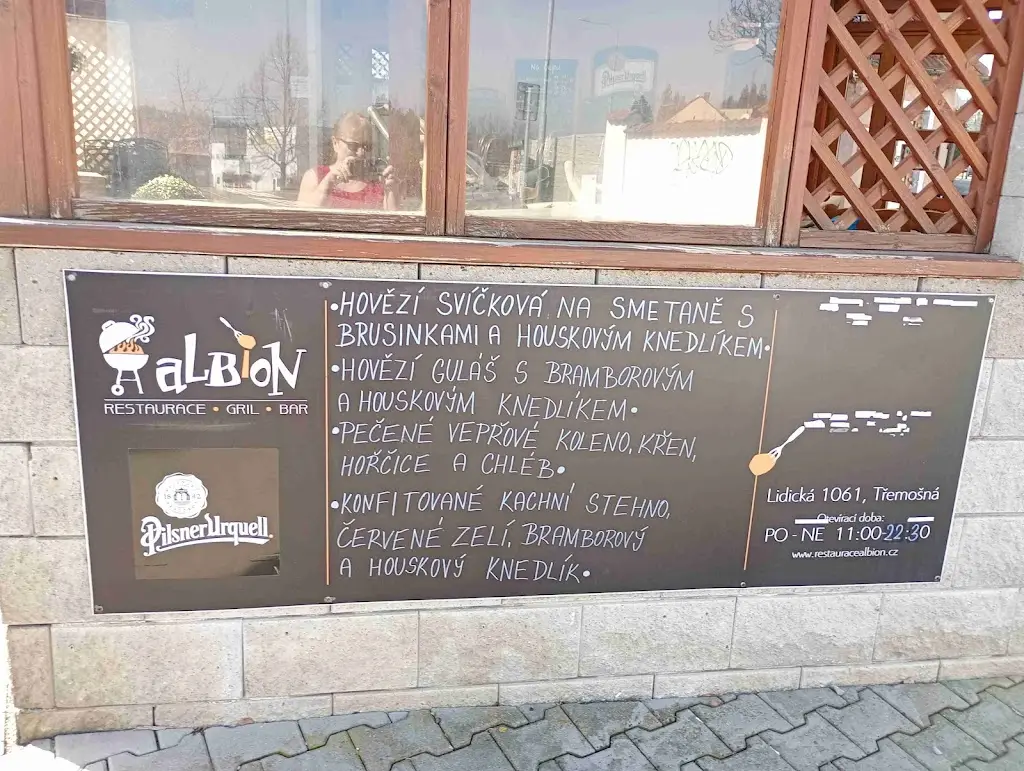 Pilsner Urquell
aLBiON
RESTAURACE • GRIL • BAR
Pilsner Urquell
•HOVĚZÍ SVÍČKOVÁ NA SMETANĚ S
BRUSINKAMI A HOUSKOVÝM KNEDLÍKEM•
•HOVĚZÍ GULÁŠ S BRAMBOROVÝM
A HOUSKOVÝM KNEDLÍKEM•
•PEČENÉ VEPŘOVÉ KOLENO, KŘEN,
HOŘČICE A CHLÉB•
•KONFITOVANÉ KACHNÍ STEHNO,
ČERVENÉ ZELÍ, BRAMBOROVÝ
A HOUSKOVÝ KNEDLÍK•
Lidická 1061, Třemošná
Otevírací doba:
PO - NE 11:00-22:30
www.restauracealbion.cz